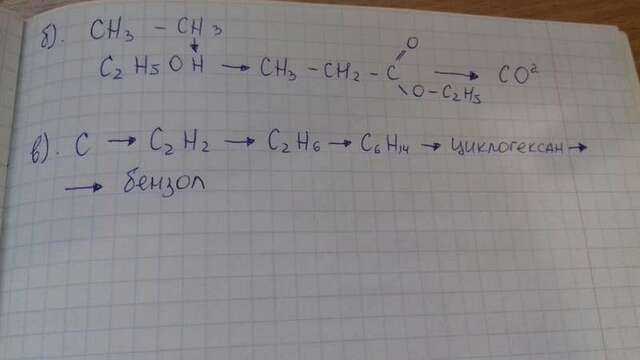 б). CH₃ – CH₃
↓
C₂ H₅ O H → CH₃ – CH₂ – C → CO²
O
O – C₂H₅
в). C → C₂ H₂ → C₂ H₆ → C₆ H₁₄ → циклогексан →
→ бензол